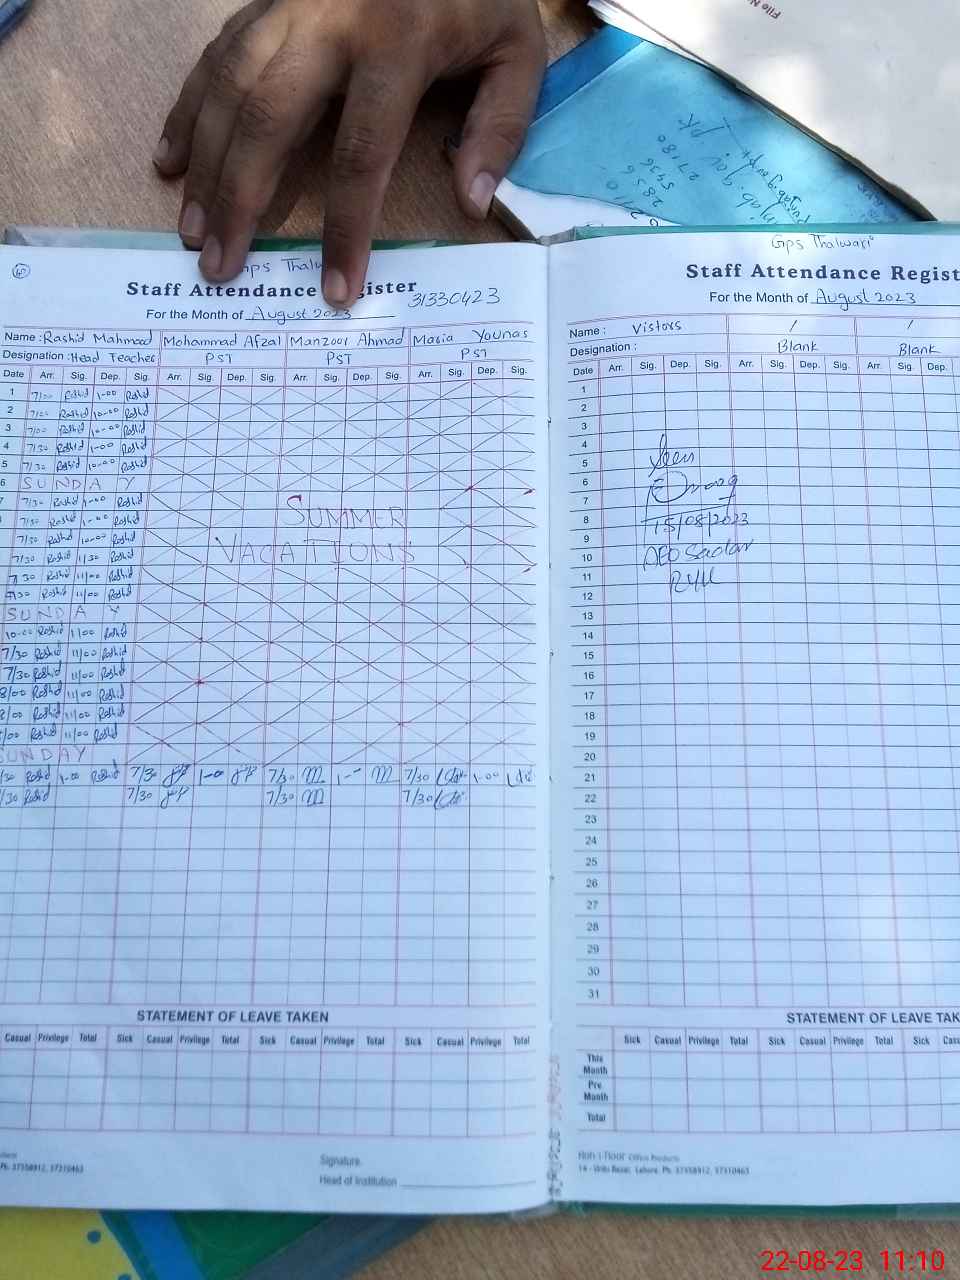 File N
Gps Thalw
Staff Attendance Register
31330423
For the Month of August 2023
Name : Rashid Mahmood Mohammad Afzal Manzoor Ahmad Maria Younas
Designation : Head Teacher PST PST PST
Date Arr. Sig. Dep. Sig. Arr. Sig. Dep. Sig. Arr. Sig. Dep. Sig. Arr. Sig. Dep. Sig.
1 7/00 Rashid 1-00 Rashid
2 7/00 Rashid 10-00 Rashid
3 7/00 Rashid 10-00 Rashid
4 7/30 Rashid 1-00 Rashid
5 7/30 Rashid 10-00 Rashid
6 SUNDAY
7 7/30 Rashid 1-00 Rashid
7/30 Rashid 1-00 Rashid
7/30 Rashid 10-00 Rashid
7/30 Rashid 11/30 Rashid
7/30 Rashid 11/00 Rashid
7/30 Rashid 11/00 Rashid
SUMMER
VACATIONS
SUNDAY
10-00 Rashid 11/00 Rashid
7/30 Rashid 11/00 Rashid
7/30 Rashid 11/00 Rashid
8/00 Rashid 11/00 Rashid
8/00 Rashid 11/00 Rashid
/00 Rashid 11/00 Rashid
SUNDAY
/30 Rashid 1-00 Rashid 7/30 1-00 7/30 1-- 7/30 1-00
/30 Rashid 7/30 7/30 7/30
STATEMENT OF LEAVE TAKEN
Casual Privilege Total Sick Casual Privilege Total Sick Casual Privilege Total Sick Casual Privilege Total
Ph. 37358912, 37310463
Signature.
Head of Institution
Gps Thalwari
Staff Attendance Regist
For the Month of August 2023
Name : Vistors / /
Designation : Blank Blank
Date Arr. Sig. Dep. Sig. Arr. Sig. Dep. Sig. Arr. Sig. Dep.
1
2
3
4
5
6
7
8
9
10
11
12
13
14
15
16
17
18
19
20
21
22
23
24
25
26
27
28
29
30
31
Seen
15/08/2023
DEO Sadar
RYK
STATEMENT OF LEAVE TAK
Sick Casual Privilege Total Sick Casual Privilege Total Sick
This Month
Pre Month
Total
Office Products
Lahore. Ph. 37358912, 37310463
22-08-23 11:10